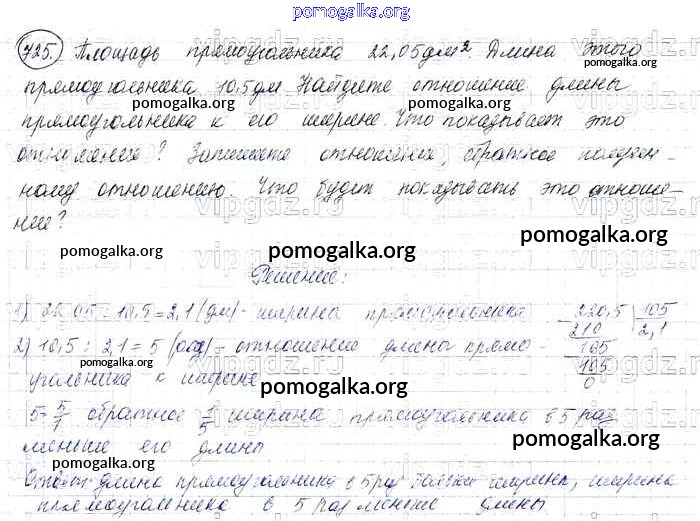 pomogalka.org
725. Площадь прямоугольника 22,05 дм². Длина этого
прямоугольника 10,5 дм. Найдите отношение длины
pomogalka.org pomogalka.org
прямоугольника к его ширине. Что показывает это
отношение? Запишите отношение, обратное получен-
ному отношению. Что будет показывать это отноше-
ние?
pomogalka.org pomogalka.org pomogalka.org
Решение:
1) 22,05 : 10,5 = 2,1 (дм) - ширина прямоугольника
220,5 105
210 2,1
2) 10,5 : 2,1 = 5 - отношение длины прямо-
105
105
0
pomogalka.org
угольника к ширине
pomogalka.org
5 = 5/1 обратное 1/5 ширина прямоугольника в 5 раз
меньше его длины
pomogalka.org
pomogalka.org
Ответ: длина прямоугольника в 5 раз ширины, ширина
прямоугольника в 5 раз меньше длины
vipgdz.ru